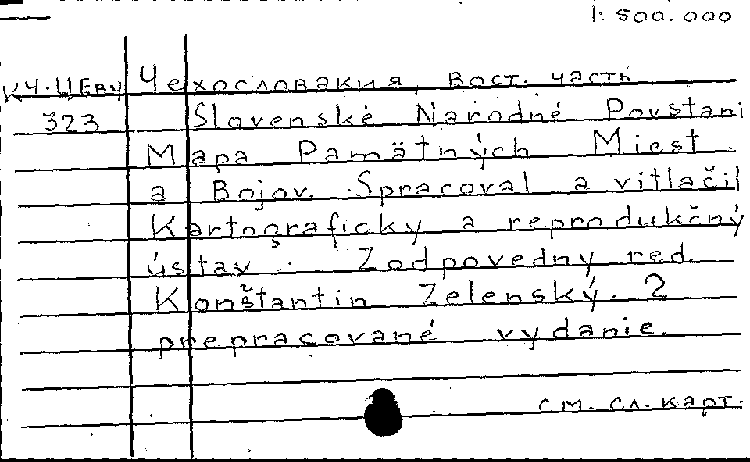 1:500.000
КЧ.ЦЕВУ Чехословакия, вост. часть
323 Slovenské Národné Povstani
Mapa Pamätných Miest
a Bojov. Spracoval a vitlačil
Kartograficky a reprodukčný
ústav. Zodpovedny red.
Konštantin Zelenský. 2
prepracované vydanie.
см. сл. карт.